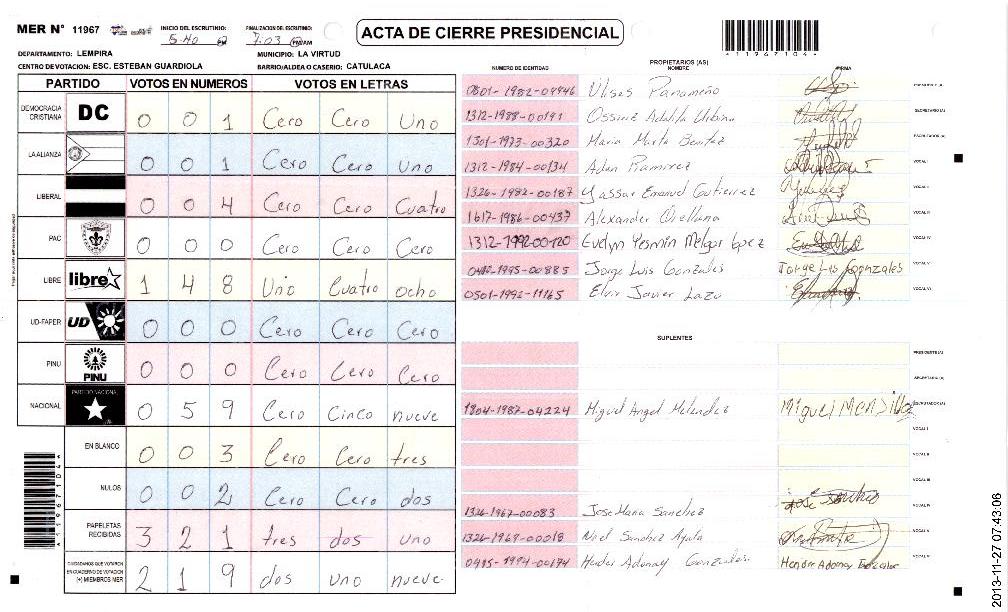 MER N° 11967
INICIO DEL ESCRUTINIO:
5:40 PM
FINALIZACION DEL ESCRUTINIO:
7:03 PM/AM
ACTA DE CIERRE PRESIDENCIAL
*11967104*
DEPARTAMENTO: LEMPIRA
MUNICIPIO: LA VIRTUD
CENTRO DE VOTACION: ESC. ESTEBAN GUARDIOLA
BARRIO/ALDEA O CASERIO: CATULACA
PARTIDO VOTOS EN NUMEROS VOTOS EN LETRAS
DEMOCRACIA CRISTIANA DC 0 0 1 Cero Cero Uno
LA ALIANZA 0 0 1 Cero Cero Uno
LIBERAL 0 0 4 Cero Cero Cuatro
PAC 0 0 0 Cero Cero Cero
LIBRE libre 1 4 8 Uno Cuatro ocho
UD-FAPER UD 0 0 0 Cero Cero Cero
PINU PINU 0 0 0 Cero Cero Cero
NACIONAL PARTIDO NACIONAL 0 5 9 Cero Cinco nueve
EN BLANCO 0 0 3 Cero Cero tres
NULOS 0 0 2 Cero Cero dos
PAPELETAS RECIBIDAS 3 2 1 tres dos uno
CIUDADANOS QUE VOTARON EN CUADERNO DE VOTACION (+) MIEMBROS MER 2 1 9 dos uno nueve
*11967104*
PROPIETARIOS (AS)
NUMERO DE IDENTIDAD NOMBRE FIRMA
0801-1982-04946 Ulises Panameño
1312-1988-00191 Adalila Urbina SECRETARIO (A)
1301-1973-00320 Maria Marta Benitez ESCRUTADOR (A)
1312-1984-00134 Adan Ramirez VOCAL I
1326-1982-00187 Yassar Emanuel Gutierrez VOCAL II
1617-1986-00437 Alexander Orellana VOCAL III
1312-1992-00120 Evelyn Yesmin Melgar lopez VOCAL IV
1995-00885 Jorge Luis Gonzales Jorge Luis Gonzales VOCAL V
0501-1992-11165 Elvir Javier Lazo VOCAL VI
SUPLENTES
PRESIDENTE (A)
SECRETARIO (A)
1804-1987-04224 Miguel Angel Melendez ESCRUTADOR (A)
VOCAL I
VOCAL II
VOCAL III
1326-1967-00083 Jose Maria Sanchez Jose Sanchez VOCAL IV
1326-1969-00018 Noel Sanchez Ayala VOCAL V
1994-00174 Adonay Gonzales
2013-11-27 07:43:06